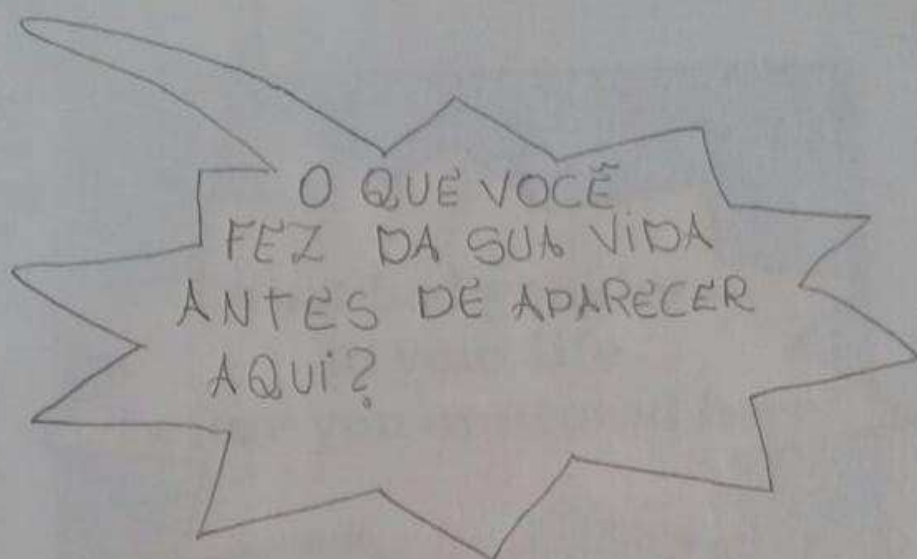 O QUE VOCÊ
FEZ DA SUA VIDA
ANTES DE APARECER
AQUI?